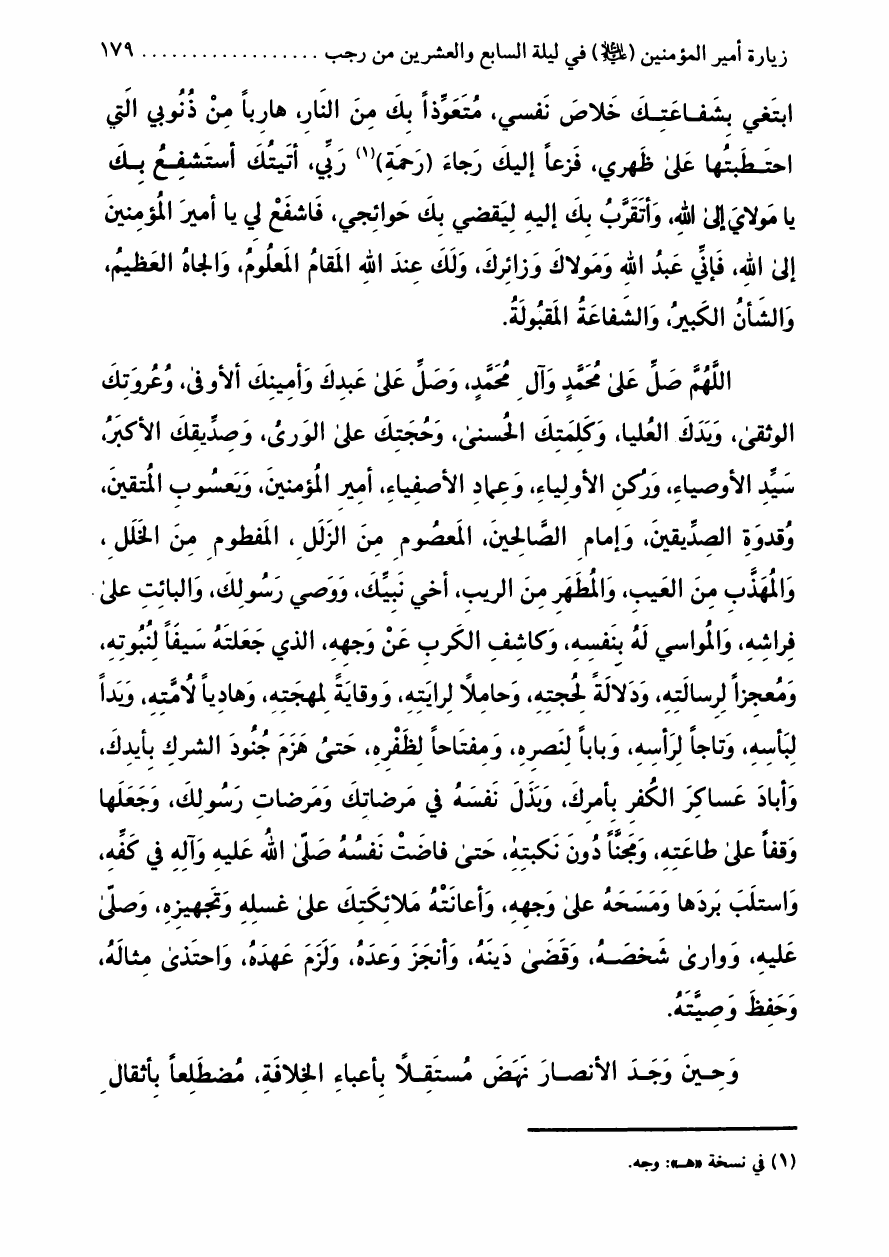 زيارة أمير المؤمنين (عليه السلام) في ليلة السابع والعشرين من رجب .................. ١٧٩
ابتَغي بِشَفاعَتِكَ خَلاصَ نَفسي، مُتَعَوِّذاً بِكَ مِنَ النارِ، هارِباً مِنْ ذُنُوبي الَتي
احتَطَبتُها عَلىٰ ظَهري، فَزِعاً إليكَ رَجاءَ (رَحمَةِ)(١) رَبِّي، أتَيتُكَ أستَشفِعُ بِكَ
يا مَولايَ إلىٰ اللهِ، وَأتَقَرَّبُ بِكَ إليهِ لِيَقضي بِكَ حَوائِجي، فَاشفَعْ لي يا أميرَ المُؤمِنينَ
إلىٰ اللهِ، فَإنِّي عَبدُ اللهِ وَمَولاكَ وَزائِركَ، وَلَكَ عِندَ اللهِ المَقامُ المَعلُومُ، وَالجاهُ العَظيمُ،
وَالشَأنُ الكَبيرُ، وَالشَفاعَةُ المَقبُولَةُ.
اللَّهُمَّ صَلِّ عَلىٰ مُحَمَّدٍ وَآلِ مُحَمَّدٍ، وَصَلِّ عَلىٰ عَبدِكَ وَأمينِكَ الأوفىٰ، وَعُروَتِكَ
الوثقىٰ، وَيَدَكَ العُليا، وَكَلِمَتِكَ الحُسنىٰ، وَحُجَتِكَ علىٰ الوَرىٰ، وَصِدِّيقِكَ الأكبَرُ،
سَيِّدِ الأوصياءِ، وَرُكنِ الأولِياءِ، وَعِمادِ الأصفِياءِ، أميرِ المُؤمِنينَ، وَيَعسُوبِ المُتقينَ،
وَقُدوَةِ الصِدِّيقينَ، وَإمامِ الصَّالِحينَ، المَعصُومِ مِنَ الزَلَلِ، المَفطُومِ مِنَ الخَلَلِ،
وَالمُهَذَّبِ مِنَ العَيبِ، وَالمُطَهَرِ مِنَ الريبِ، أخي نَبيِّكَ، وَوَصي رَسُولِكَ، وَالبائِتِ علىٰ
فِراشِهِ، وَالمُواسي لَهُ بِنَفسِهِ، وَكاشِفِ الكَربِ عَنْ وَجهِهِ، الذي جَعَلتَهُ سَيفاً لِنُبُوتِهِ،
وَمُعجِزاً لِرِسالَتِهِ، وَدَلالَةً لِحُجتِهِ، وَحامِلاً لِرايَتِهِ، وَوِقايَةً لِمهجَتِهِ، وَهادِياً لأُمَّتِهِ، وَيَداً
لِبَأسِهِ، وَتاجاً لِرَأسِهِ، وَباباً لِنَصرِهِ، وَمِفتَاحاً لِظَفْرِهِ، حَتىٰ هَزَمَ جُنُودَ الشركِ بِأيدِكَ،
وَأبادَ عَساكِرَ الكُفرِ بِأمرِكَ، وَبَذَلَ نَفسَهُ في مَرضاتِكَ وَمَرضاتِ رَسُولِكَ، وَجَعَلَها
وَقفاً علىٰ طاعَتِهِ، وَمِجَنَّاً دُونَ نَكبَتِهِ، حَتىٰ فاضَتْ نَفسُهُ صَلّىٰ اللهُ عَليهِ وَآلِهِ في كَفِّهِ،
وَاستَلَبَ بَردَها وَمَسَحَهُ علىٰ وَجهِهِ، وَأعانَتْهُ مَلائِكَتِكَ علىٰ غسلِهِ وَتَجهيزِهِ، وَصلّىٰ
عَليهِ، وَوارىٰ شَخصَهُ، وَقَضىٰ دَينَهُ، وَأنجَزَ وَعدَهُ، وَلَزَمَ عَهدَهُ، وَاحتَذىٰ مِثالَهُ،
وَحَفِظَ وَصِيَّتَهُ.
وَحِينَ وَجَدَ الأنصارَ نَهَضَ مُستَقِلاً بِأعباءِ الخِلافَةِ، مُضطَلِعاً بِأثقالِ
(١) في نسخة «هـ»: وجه.